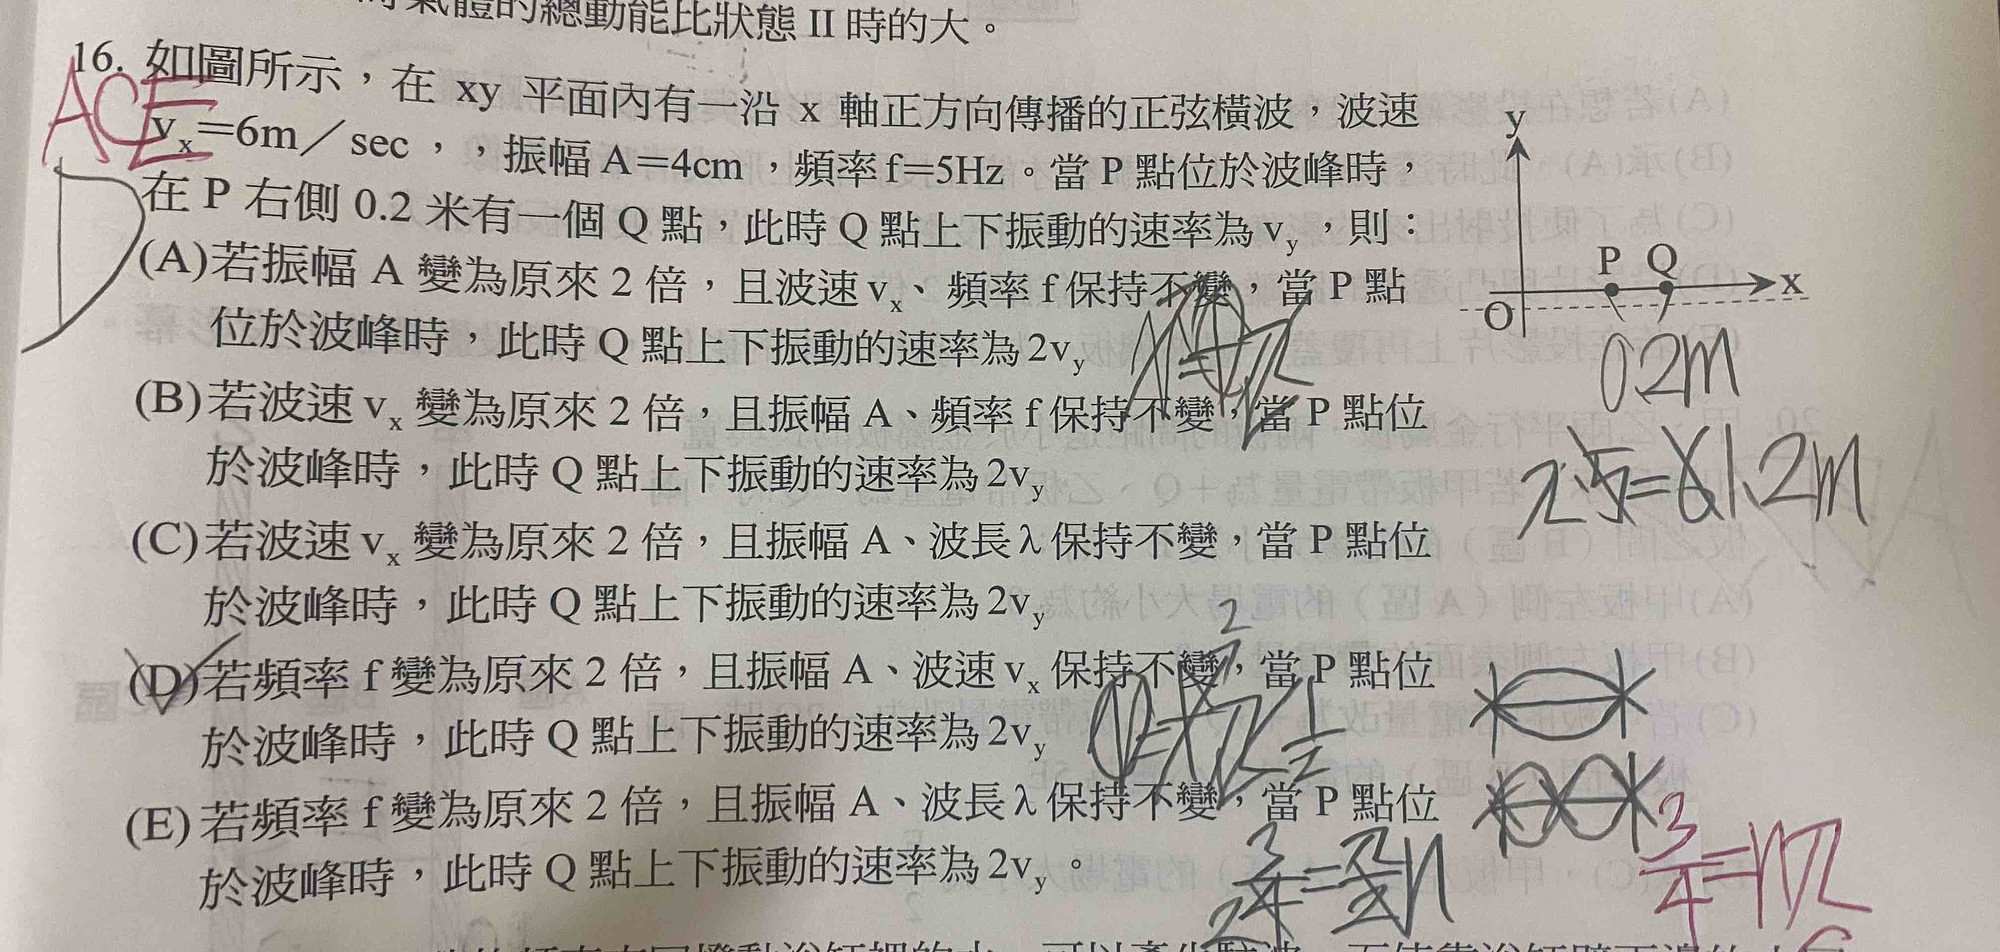 氣體的總動能比狀態 II 時的大。
16. 如圖所示，在 xy 平面內有一沿 x 軸正方向傳播的正弦橫波，波速
ACE
vx＝6m／sec，，振幅 A＝4cm，頻率 f＝5Hz。當 P 點位於波峰時，
在 P 右側 0.2 米有一個 Q 點，此時 Q 點上下振動的速率為 vy，則：
D
(A)若振幅 A 變為原來 2 倍，且波速 vx、頻率 f 保持不變，當 P 點
位於波峰時，此時 Q 點上下振動的速率為 2vy
(B)若波速 vx 變為原來 2 倍，且振幅 A、頻率 f 保持不變，當 P 點位
於波峰時，此時 Q 點上下振動的速率為 2vy
(C)若波速 vx 變為原來 2 倍，且振幅 A、波長 λ 保持不變，當 P 點位
於波峰時，此時 Q 點上下振動的速率為 2vy
(D)若頻率 f 變為原來 2 倍，且振幅 A、波速 vx 保持不變，當 P 點位
於波峰時，此時 Q 點上下振動的速率為 2vy
(E)若頻率 f 變為原來 2 倍，且振幅 A、波長 λ 保持不變，當 P 點位
於波峰時，此時 Q 點上下振動的速率為 2vy。
y
P Q
x
O
0.2m
λ·5=6 1.2m